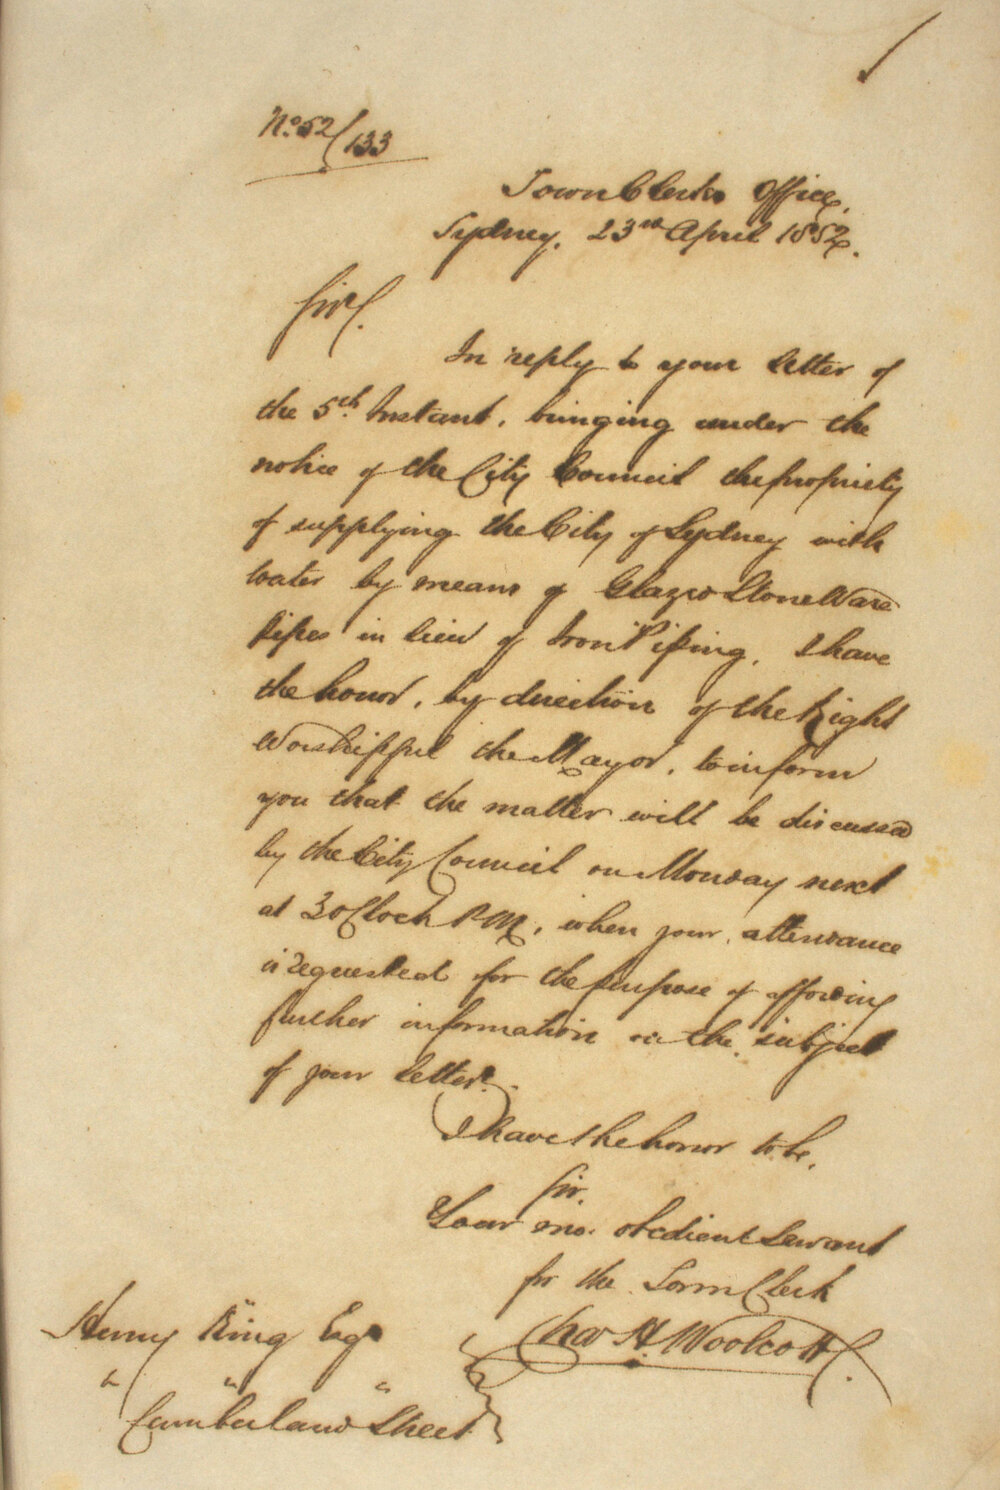 No. 52/133
Town Clerks Office,
Sydney, 23rd April 1852.
Sir,
In reply to your letter of
the 5th Instant, bringing under the
notice of the City Council the propriety
of supplying the City of Sydney with
water by means of Glazed Stone Ware
Pipes in lieu of Iron Piping, I have
the honor, by direction of the Right
Worshipful the Mayor, to inform
you that the matter will be discussed
by the City Council on Monday next
at 3 o'Clock P.M., when your attendance
is requested for the purpose of affording
further information on the subject
of your letter.
I have the honor to be,
Sir,
Your mo. obedient Servant
for the Town Clerk
Chas H. Woolcott
Henry King Esqr
" " "
Cumberland Street